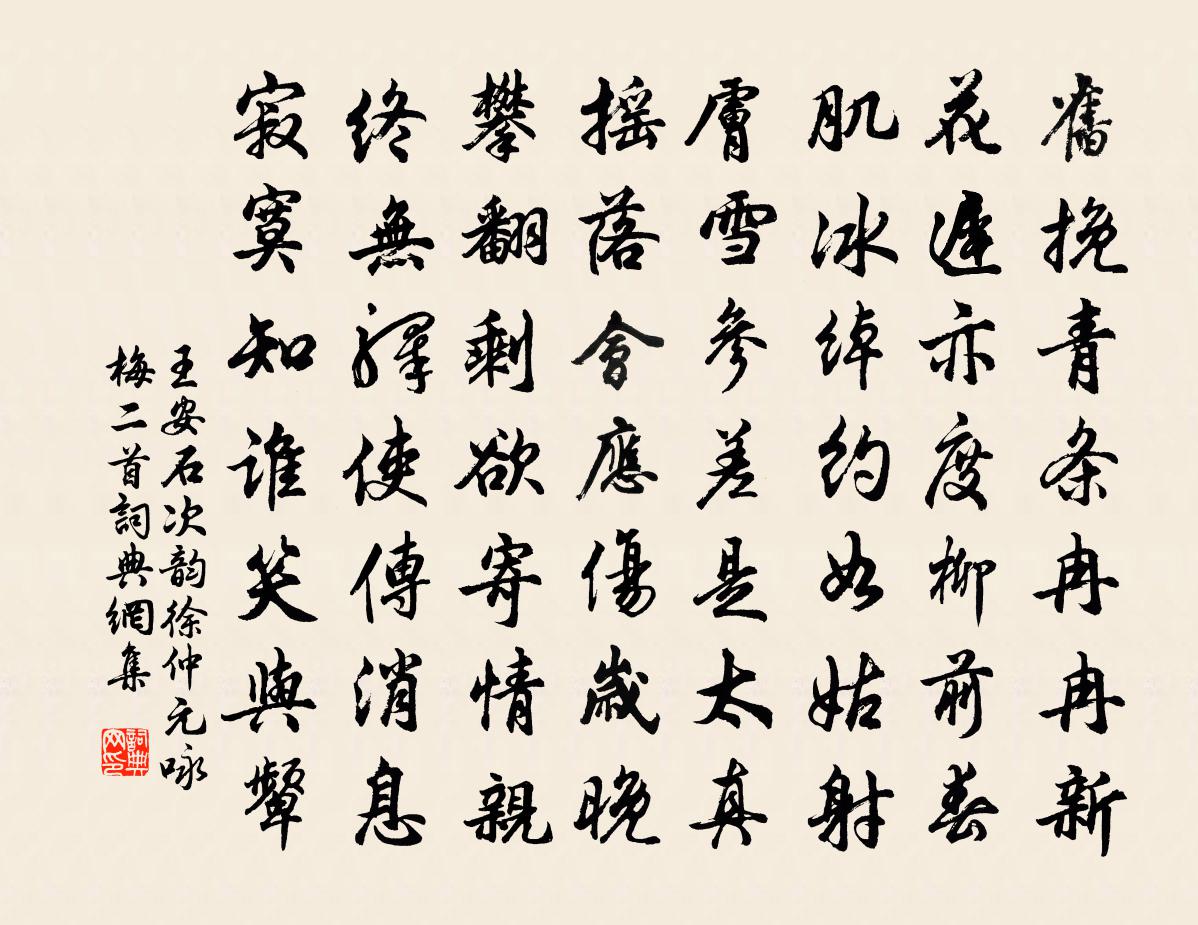 舊挽青条冉冉新
花遲亦度柳前春
肌冰绰约如姑射
膚雪參差是太真
摇落會應傷歲晚
攀翻剩欲寄情親
终無驛使傳消息
寂寞知谁笑與顰
王安石次韵徐仲元咏
梅二首詞典網集
詞典
网印